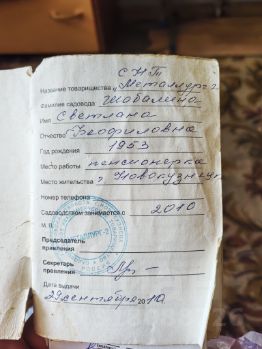 СНТ
Название товарищества "Металлург-2
Фамилия садовода Шабалина
Имя Светлана
Отчество Феофиловна
Год рождения 1953
Место работы пенсионерка
Место жительства г Новокузнецк
Номер телефона
Садоводством занимается с 2010
М. П.
Председатель
правления
Секретарь
правления
Дата выдачи
29 сентября 2010